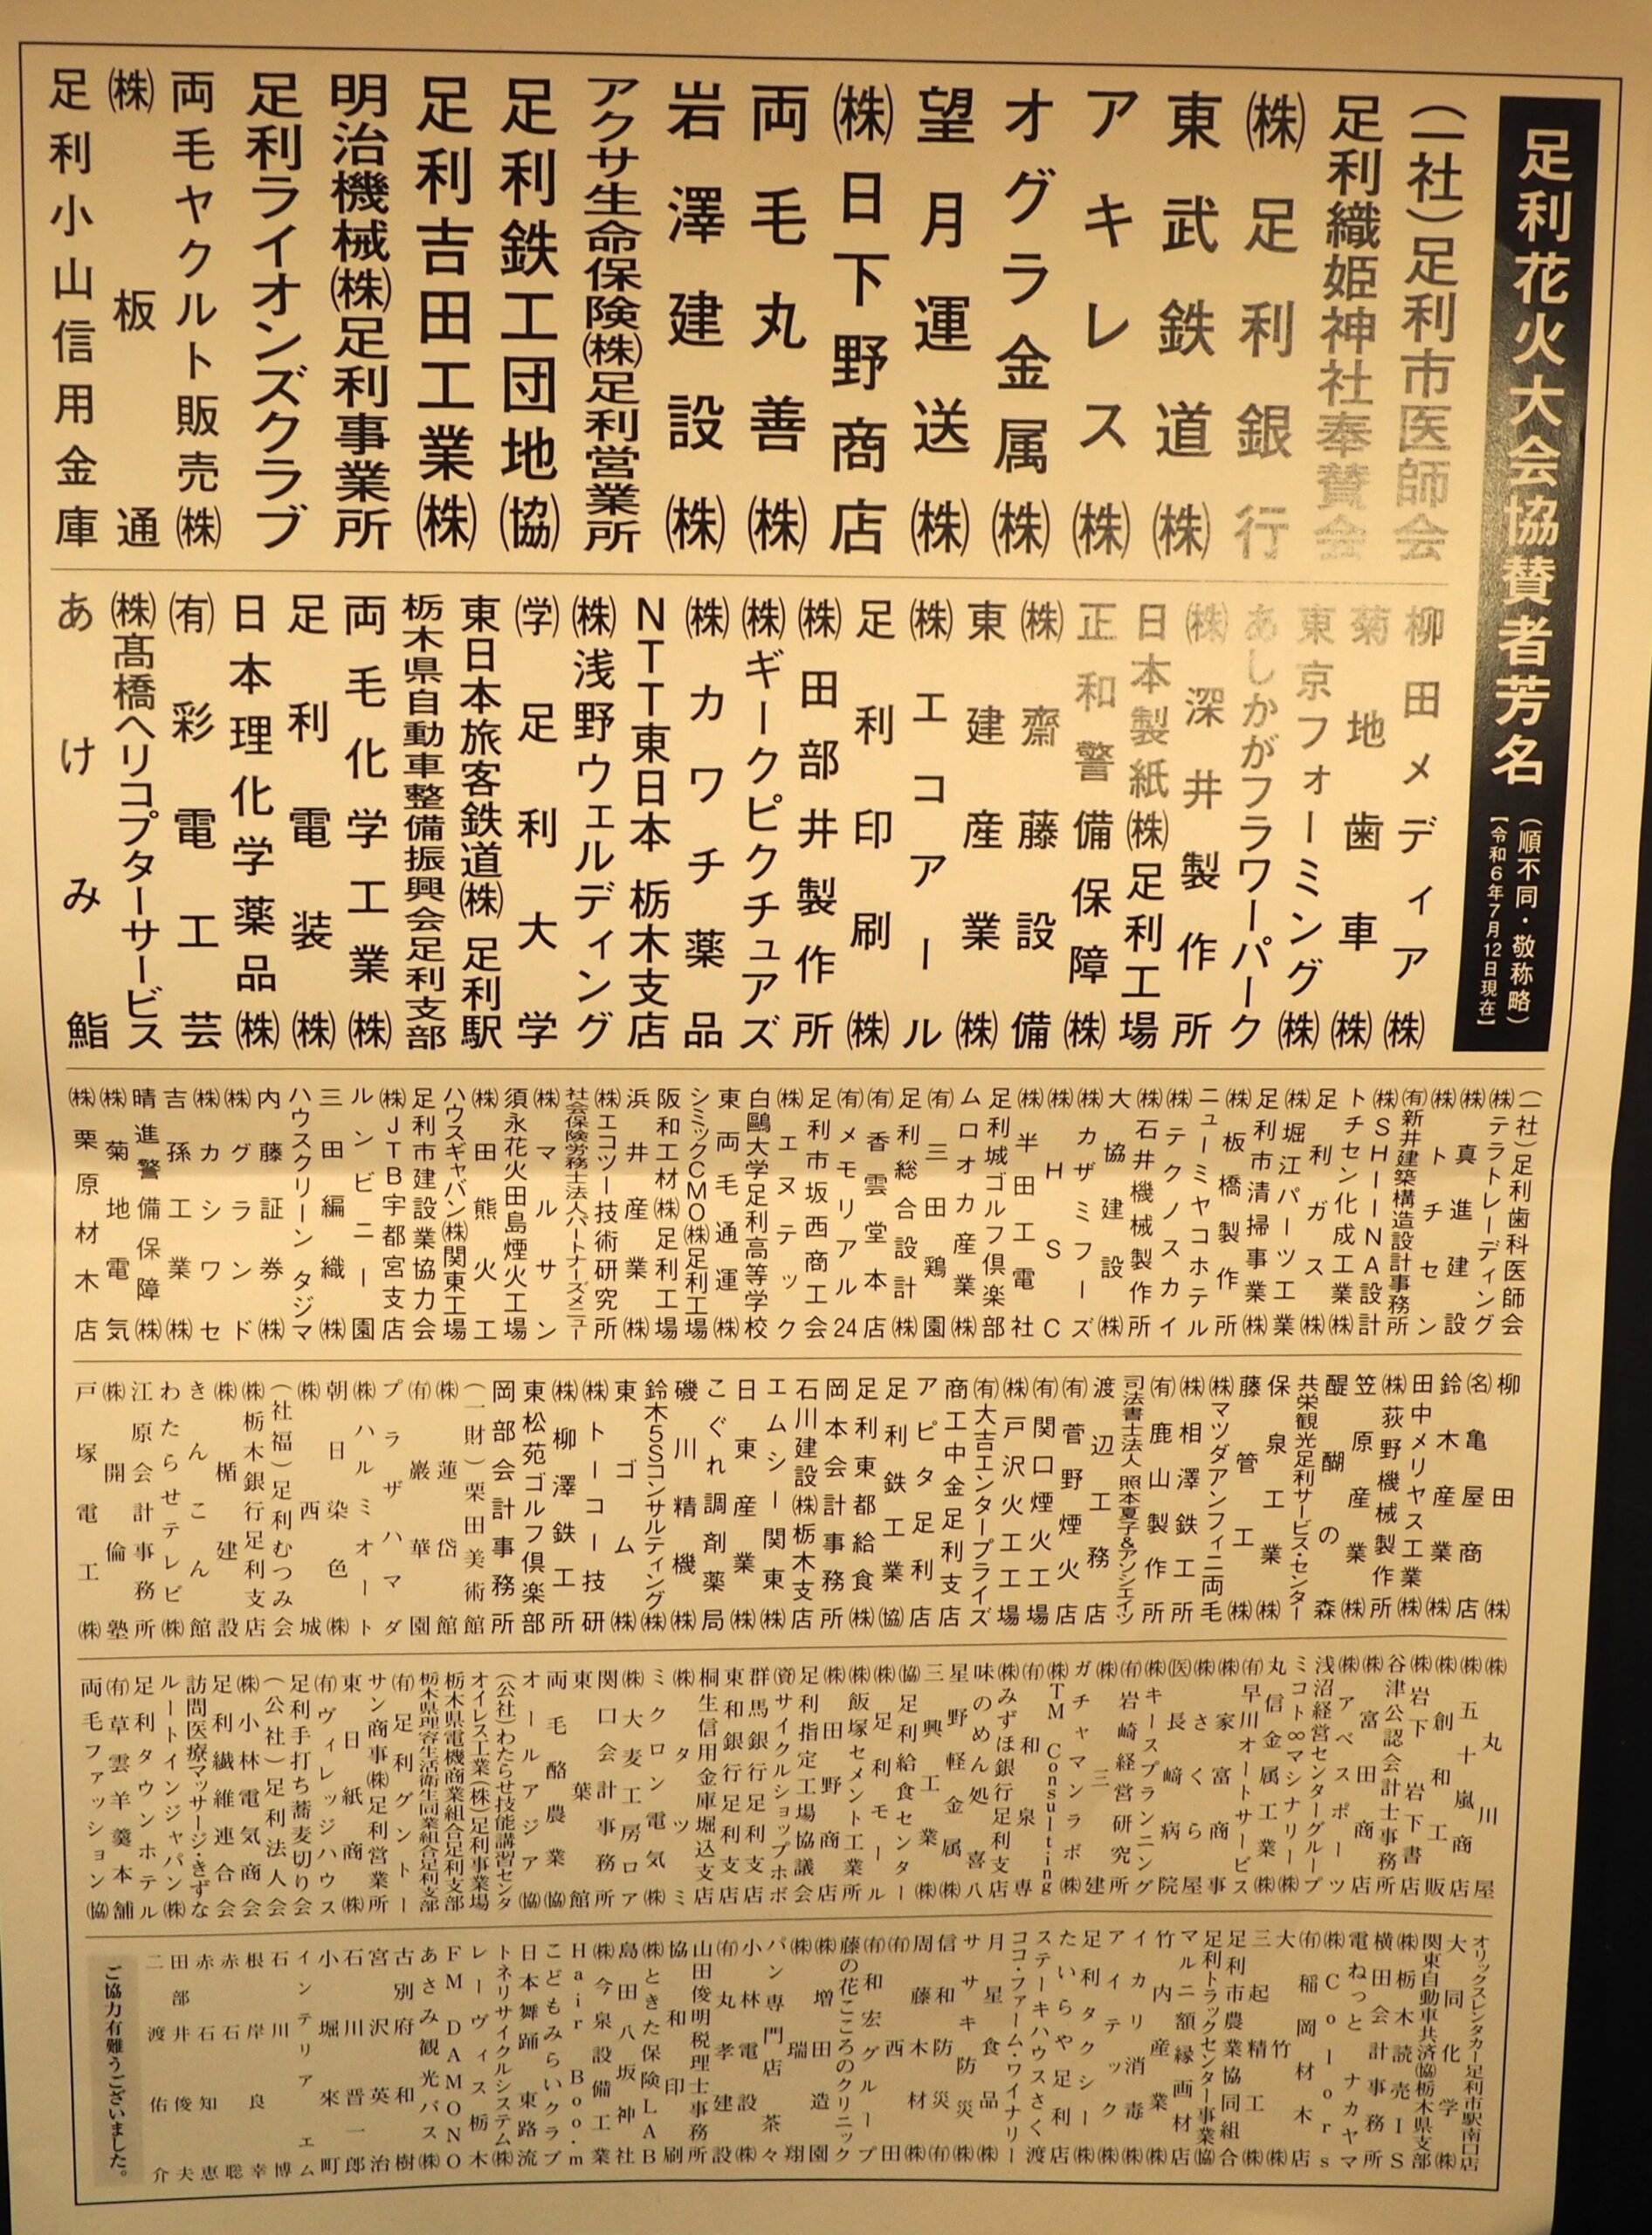 足利花火大会協賛者芳名
（順不同・敬称略）
【令和6年7月12日現在】
（一社）足利市医師会
足利織姫神社奉賛会
㈱足利銀行
東武鉄道㈱
アキレス㈱
オグラ金属㈱
望月運送㈱
㈱日下野商店
両毛丸善㈱
岩澤建設㈱
アクサ生命保険㈱足利営業所
足利鉄工団地㈿
足利吉田工業㈱
明治機械㈱足利事業所
足利ライオンズクラブ
両毛ヤクルト販売㈱
㈱板通
足利小山信用金庫
柳田メディア㈱
菊地歯車㈱
東京フォーミング㈱
あしかがフラワーパーク
㈱深井製作所
日本製紙㈱足利工場
正和警備保障㈱
㈱齋藤設備
東建産業㈱
㈱エコアール
足利印刷㈱
㈱田部井製作所
㈱ギークピクチュアズ
㈱カワチ薬品
NTT東日本 栃木支店
㈱浅野ウェルディング
㈻足利大学
東日本旅客鉄道㈱ 足利駅
栃木県自動車整備振興会足利支部
両毛化学工業㈱
足利電装㈱
日本理化学薬品㈱
㈲彩電工芸
㈱髙橋ヘリコプターサービス
あけみ鮨
（一社）足利歯科医師会
㈱テラトレーディング
㈱真進建設
㈱トチセン
㈲新井建築構造設計事務所
㈱SHIINA設計
トチセン化成工業㈱
足利ガス㈱
㈱堀江パーツ工業
足利市清掃事業㈱
㈱板橋製作所
ニューミヤコホテル
㈱テクノスカイ
㈱石井機械製作所
大協建設㈱
㈱カザミフーズ
㈱HSC
㈱半田工電社
足利城ゴルフ倶楽部
ムロオカ産業㈱
㈲三田鶏園
足利総合設計㈱
㈲香雲堂本店
㈲メモリアル24
足利市坂西商工会
㈱エヌテック
白鷗大学足利高等学校
東両毛通運㈱
シミックCMO㈱足利工場
阪和工材㈱足利工場
浜井産業㈱
㈱エコツー技術研究所
社会保険労務士法人パートナーズメニュー
㈱マルサン
須永花火田島煙火工場
㈱田熊火工
ハウスギャバン㈱関東工場
足利市建設業協力会
㈱JTB宇都宮支店
ルンビニー園
三田編織㈱
ハウスクリーンタジマ
内藤証券㈱
㈱グランド
㈱カシワセ
吉孫工業㈱
晴進警備保障㈱
㈱菊地電気
㈱栗原材木店
柳田㈱
㈴亀屋商店
鈴木産業㈱
田中メリヤス工業㈱
㈱荻野機械製作所
笠原産業㈱
醍醐の森
共栄観光足利サービス・センター
保泉工業㈱
藤管工㈱
㈱マツダアンフィニ両毛
㈱相澤鉄工所
㈲鹿山製作所
司法書士法人 照本夏子&アソシエイツ
渡辺工務店
㈲菅野煙火店
㈲関口煙火工場
㈱戸沢火工工場
㈲大吉エンタープライズ
商工中金足利支店
アピタ足利店
足利鉄工業㈿
足利東都給食㈱
岡本会計事務所
石川建設㈱栃木支店
エムシー関東㈱
日東産業㈱
こぐれ調剤薬局
磯川精機㈱
鈴木5Sコンサルティング㈱
東ゴム㈱
㈱トーコー技研
㈱柳澤鉄工所
東松苑ゴルフ倶楽部
岡部会計事務所
（一財）栗田美術館
㈱蓮岱館
㈲巌華園
プラザハマダ
㈱ハルミオート
朝日染色㈱
㈱西城
（社福）足利むつみ会
㈱栃木銀行足利支店
㈱楯建設
きんこん館
わたらせテレビ㈱
江原会計事務所
㈱開倫塾
戸塚電工㈱
㈱丸川屋
㈱五十嵐商店
㈱創和工販
㈱岩下 岩下書店
谷津公認会計士事務所
㈱富田商店
㈱アベスポーツ
浅沼経営センターグループ
ミコト∞マシナリー㈱
丸信金属工業㈱
㈲早川オートサービス
㈱家富商事
㈱さくら屋
㈩長﨑病院
㈱キースプランニング
㈲岩崎経営研究所
㈱三建
ガチャマンラボ㈱
㈱TM Consulting
㈲和泉専
㈱みずほ銀行足利支店
味のめん処 喜八
星野軽金属㈱
三興工業㈱
㈿足利給食センター
㈱足利モール
㈱飯塚セメント工業所
㈱田野商店
足利指定工場協議会
㈾サイクルショップポポ
群馬銀行足利支店
東和銀行足利支店
桐生信用金庫堀込支店
㈱タツミ
ミクロン電気㈱
㈱大麦工房ロア
関口会計事務所
東葉館
両毛酪農業㈿
オールアジア㈿
（公社）わたらせ技能講習センター
オイレス工業㈱足利事業場
栃木県電機商業組合足利支部
栃木県理容生活衛生同業組合足利支部
㈲足利グントー
サン商事㈱足利営業所
東日紙商㈱
㈲ヴィレッジハウス
足利手打ち蕎麦切り会
（公社）足利法人会
㈱小林電気商会
足利繊維連合会
訪問医療マッサージ・きずな
ルートインジャパン㈱
足利タウンホテル
㈲草雲羊羹本舗
両毛ファッション㈿
オリックスレンタカー足利市駅南口店
大同化学㈱
関東自動車共済㈿栃木県支部
㈱栃木読売IS
横田会計事務所
電ねっとナカヤマ
㈱Colors
㈲稲岡材木店
大竹㈱
三起精工㈱
足利市農業協同組合
足利トラックセンター事業㈿
マルニ額縁画材店
竹内産業㈱
イカリ消毒㈱
アイテック㈱
足利タクシー㈱
たいらや足利店
ステーキハウスさく渡
ココ・ファーム・ワイナリー
月星食品㈱
サササキ防災㈱
信和防災㈲
周藤木材㈱
㈲西田
㈲和宏グループ
藤の花こころのクリニック
㈱増田造園
㈱瑞翔
パン専門店 茶々
小林電設㈱
㈲丸孝建設
山田俊明税理士事務所
協和印刷
㈱ときた保険LAB
島田八坂神社
㈱今泉設備工業
Hair Boo・m
こどもみらいクラブ
日本舞踊 東路流
トネリサイクルシステム㈱
レーヴィス栃木
FM DAMONO
あさみ観光バス㈱
古別府和樹
宮沢英治
石川晋一郎
小堀來町
インテリアエム
石川博
根岸良幸
赤石聡
赤石知恵
田部井俊夫
二渡佑介
ご協力有難うございました。